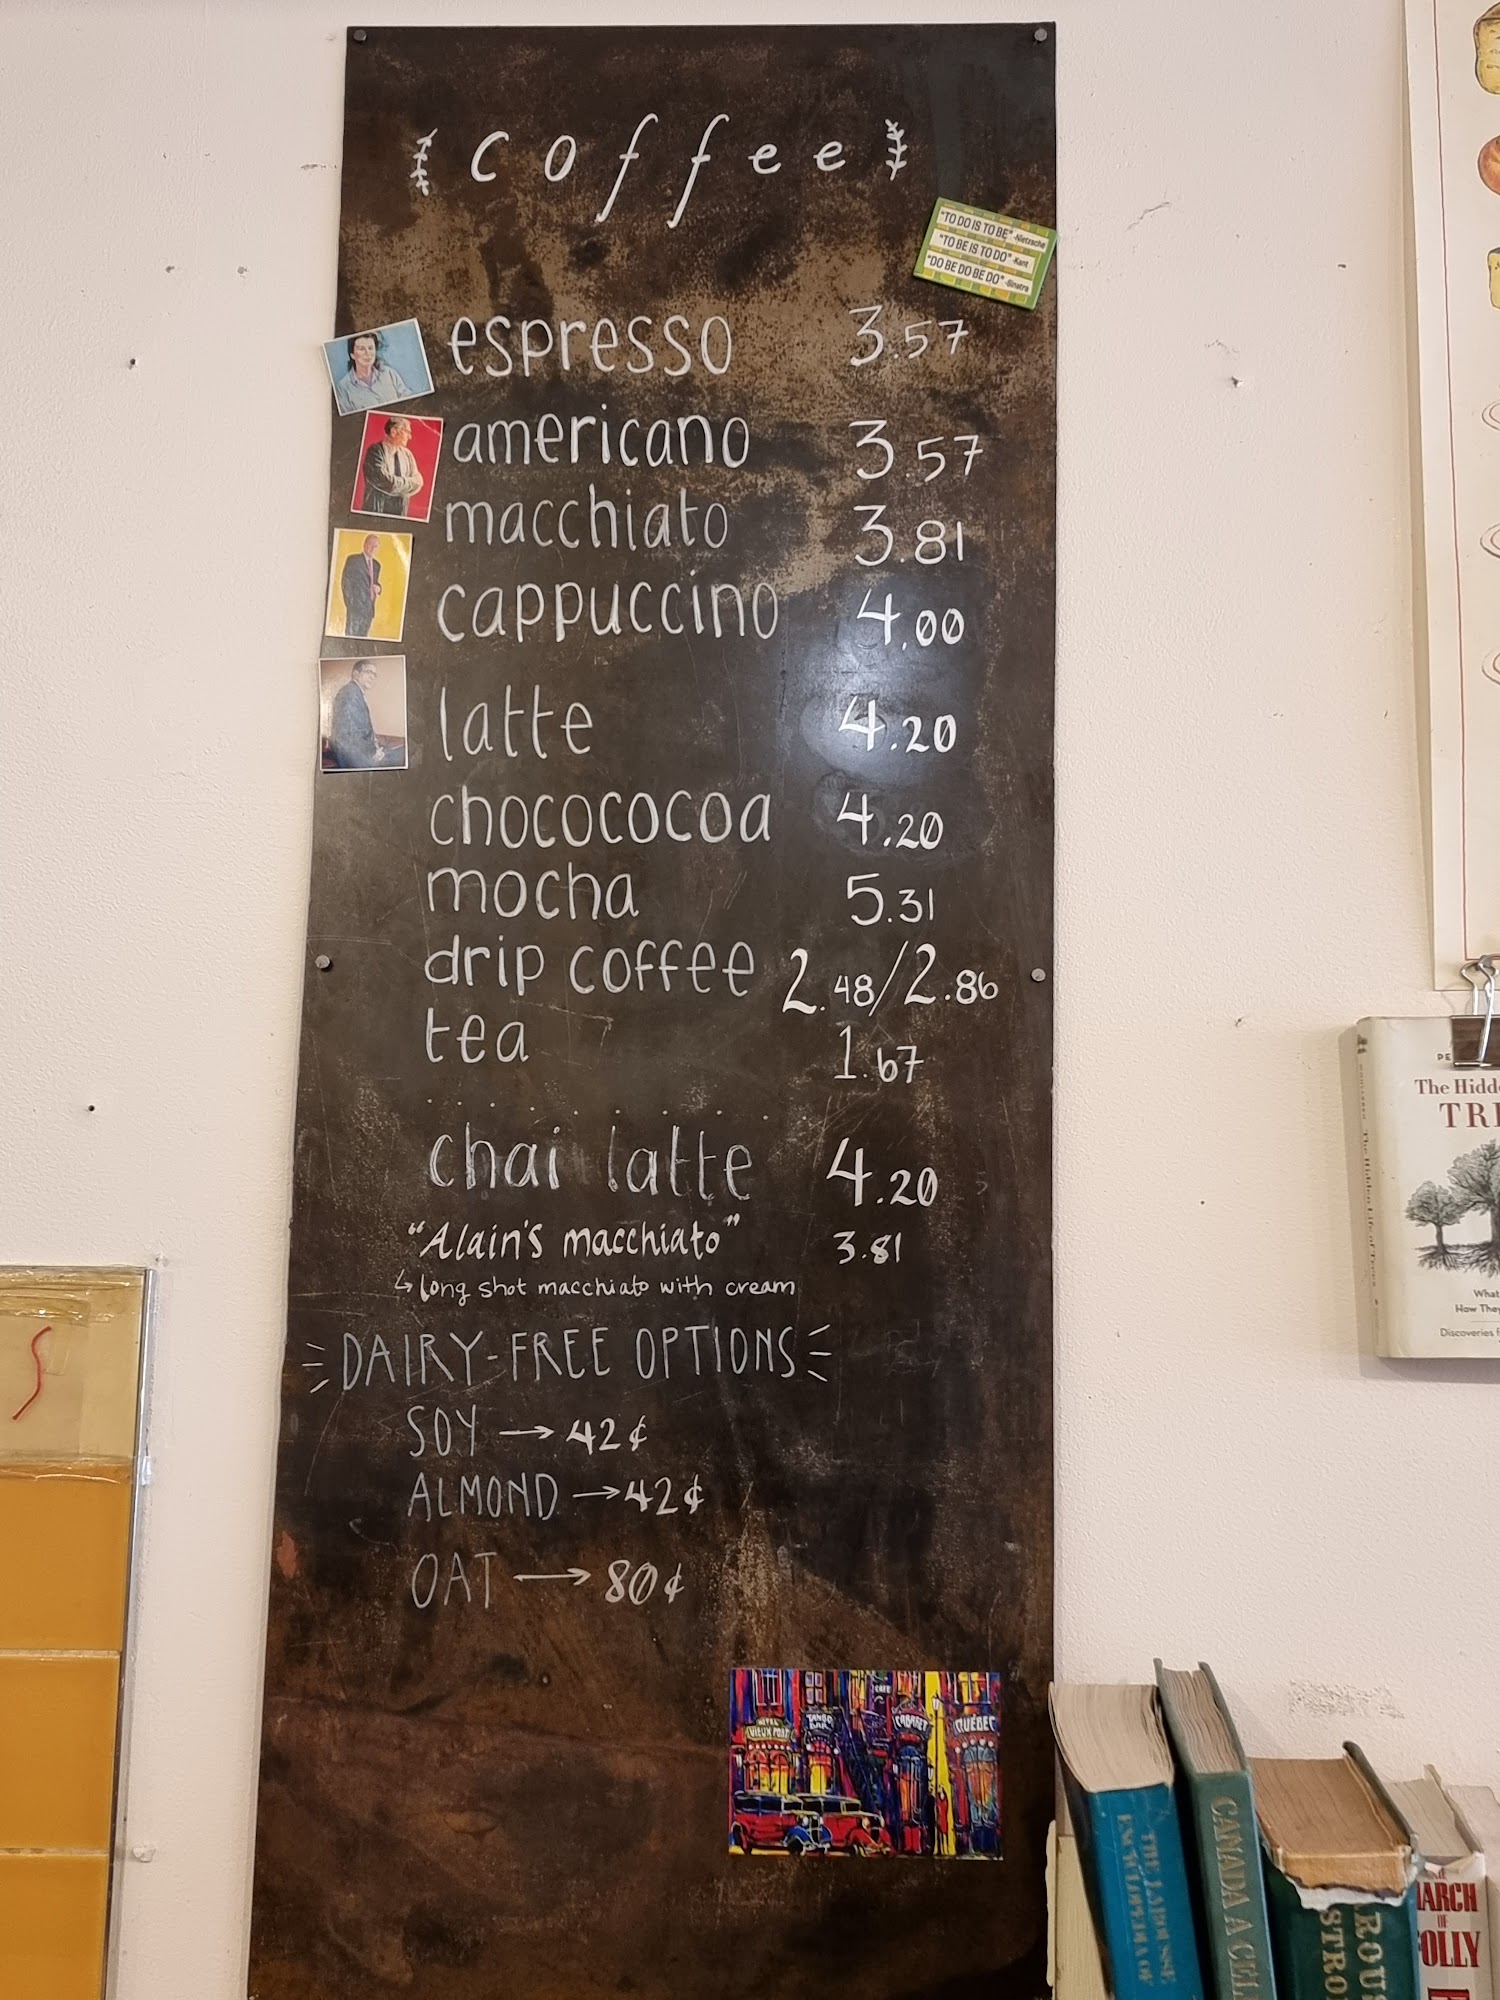 coffee
"TO DO IS TO BE" -Nietzsche
"TO BE IS TO DO" -Kant
"DO BE DO BE DO" -Sinatra
espresso 3.57
americano 3.57
macchiato 3.81
cappuccino 4.00
latte 4.20
chocococoa 4.20
mocha 5.31
drip coffee 2.48/2.86
tea 1.67
chai latte 4.20
"Alain's macchiato" 3.81
↳ long shot macchiato with cream
DAIRY-FREE OPTIONS
SOY → 42¢
ALMOND → 42¢
OAT → 80¢
CAFE
HOTEL
VIEUX PORT
TANGO
BAR
CABARET
QUÉBEC
PE
The Hidd
TRE
What
How They
Discoveries f
The Hidden Life of Trees
THE LAROUSSE
CANADA A CEL
ARCH
OF
OLLY